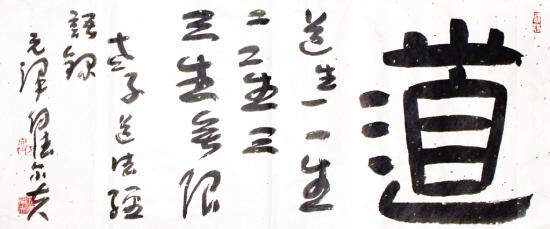 道
道生一一生
二二生三
三生無限
老子道德經
語錄